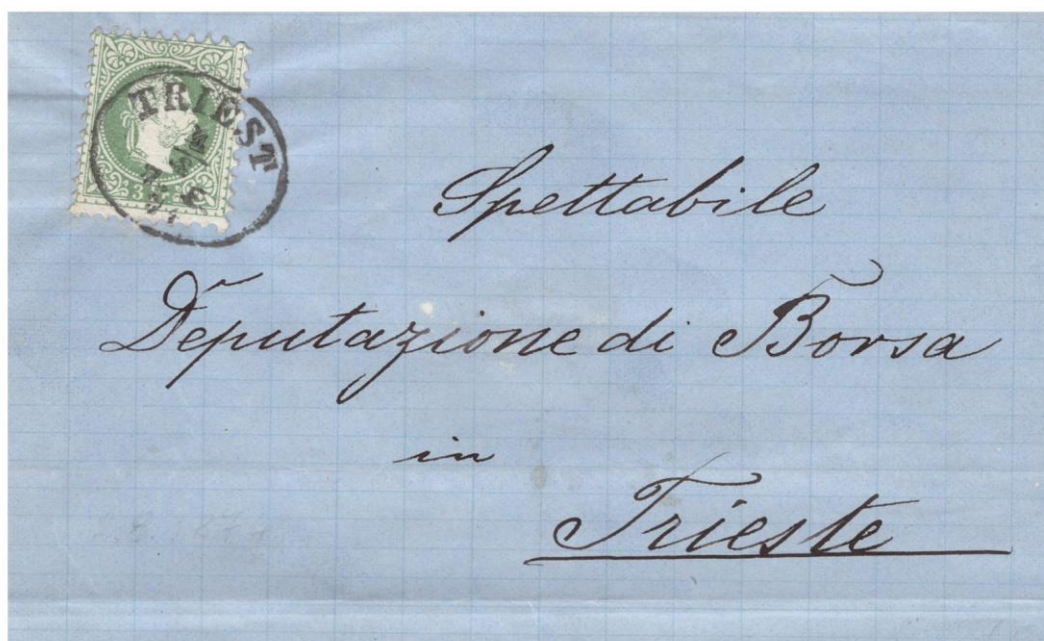 TRIEST
3
Spettabile
Deputazione di Borsa
in
Trieste